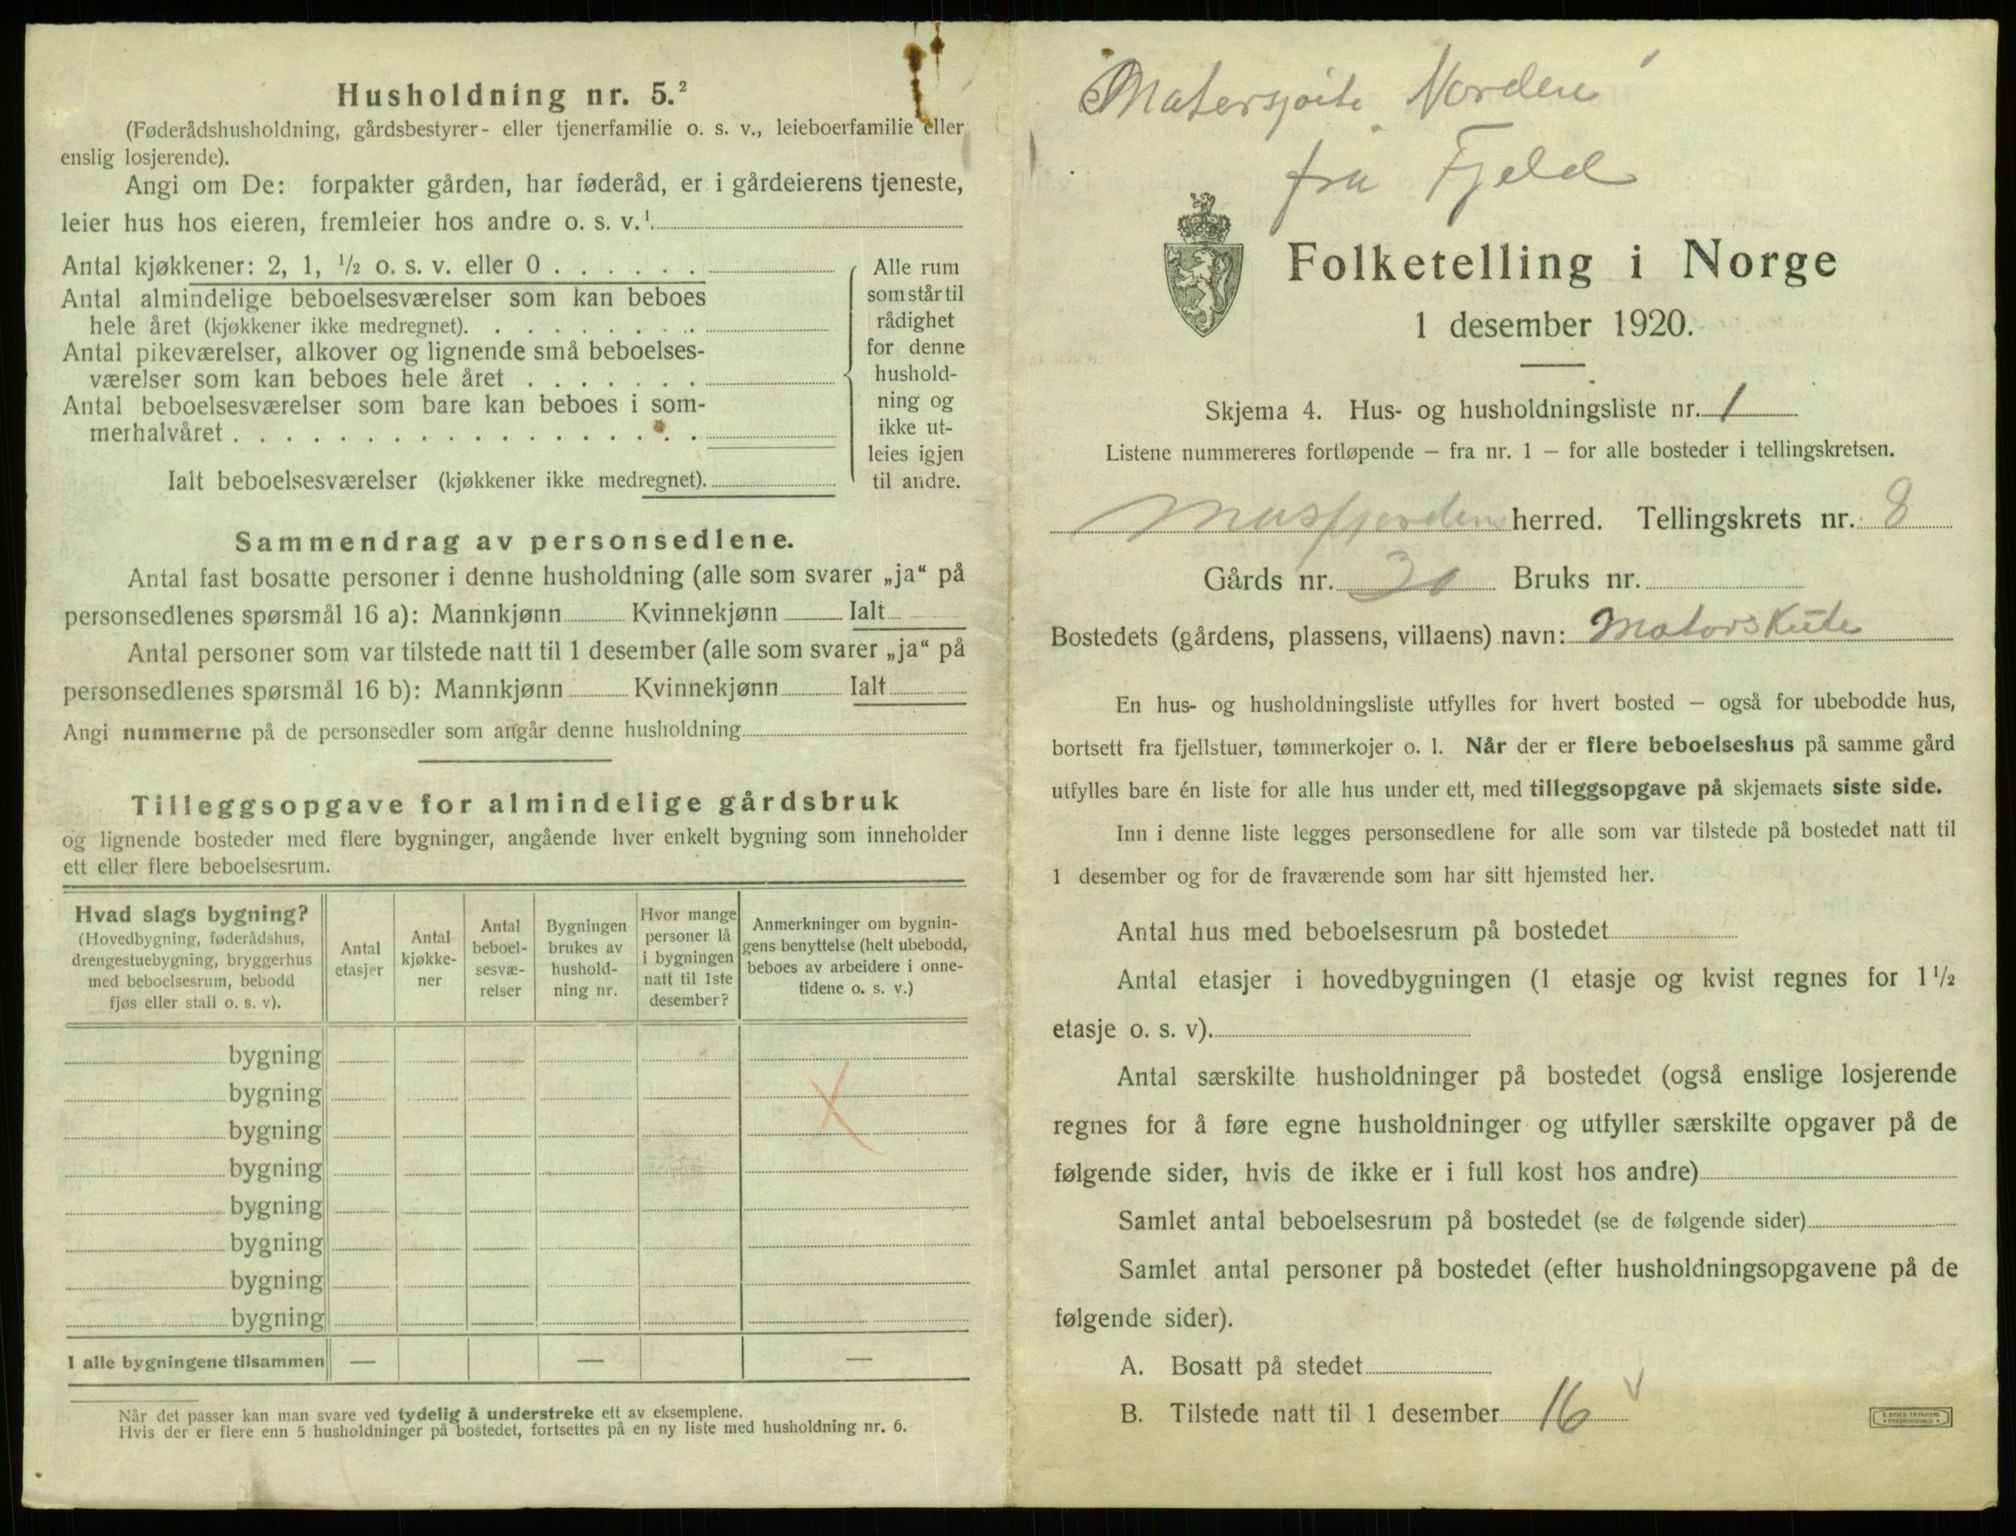 Husholdning nr. 5.²
(Føderådshusholdning, gårdsbestyrer- eller tjenerfamilie o. s. v., leieboerfamilie eller
enslig losjerende).
Angi om De: forpakter gården, har føderåd, er i gårdeierens tjeneste,
leier hus hos eieren, fremleier hos andre o. s. v.¹
Antal kjøkkener: 2, 1, ½ o. s. v. eller 0 . . . . . .
Antal almindelige beboelsesværelser som kan beboes
hele året (kjøkkener ikke medregnet). . . . . . . . .
Antal pikeværelser, alkover og lignende små beboelses-
værelser som kan beboes hele året . . . . . . .
Antal beboelsesværelser som bare kan beboes i som-
merhalvåret . . . . . . . . . . . . . . . . . .
Ialt beboelsesværelser (kjøkkener ikke medregnet).
Alle rum
som står til
rådighet
for denne
hushold-
ning og
ikke ut-
leies igjen
til andre.
Sammendrag av personsedlene.
Antal fast bosatte personer i denne husholdning (alle som svarer „ja“ på
personsedlenes spørsmål 16 a): Mannkjønn Kvinnekjønn Ialt
Antal personer som var tilstede natt til 1 desember (alle som svarer „ja“ på
personsedlenes spørsmål 16 b): Mannkjønn Kvinnekjønn Ialt
Angi nummerne på de personsedler som angår denne husholdning
Tilleggsopgave for almindelige gårdsbruk
og lignende bosteder med flere bygninger, angående hver enkelt bygning som inneholder
ett eller flere beboelsesrum.
Hvad slags bygning?
(Hovedbygning, føderådshus,
drengestuebygning, bryggerhus
med beboelsesrum, bebodd
fjøs eller stall o. s. v).
Antal
etasjer
Antal
kjøkke-
ner
Antal
beboel-
sesvæ-
relser
Bygningen
brukes av
hushold-
ning nr.
Hvor mange
personer lå
i bygningen
natt til 1ste
desember?
Anmerkninger om bygnin-
gens benyttelse (helt ubebodd,
beboes av arbeidere i onne-
tidene o. s. v.)
bygning
bygning
bygning
bygning
bygning
bygning
bygning
bygning
I alle bygningene tilsammen — — —
Når det passer kan man svare ved tydelig å understreke ett av eksemplene.
Hvis der er flere enn 5 husholdninger på bostedet, fortsettes på en ny liste med husholdning nr. 6.
Norden
fra Fjeld
Folketelling i Norge
1 desember 1920.
Skjema 4. Hus- og husholdningsliste nr. 1
Listene nummereres fortløpende — fra nr. 1 — for alle bosteder i tellingskretsen.
Masfjorden herred. Tellingskrets nr. 8
Gårds nr. Bruks nr.
Bostedets (gårdens, plassens, villaens) navn: Motorskute
En hus- og husholdningsliste utfylles for hvert bosted — også for ubebodde hus,
bortsett fra fjellstuer, tømmerkojer o. l. Når der er flere beboelseshus på samme gård
utfylles bare én liste for alle hus under ett, med tilleggsopgave på skjemaets siste side.
Inn i denne liste legges personsedlene for alle som var tilstede på bostedet natt til
1 desember og for de fraværende som har sitt hjemsted her.
Antal hus med beboelsesrum på bostedet
Antal etasjer i hovedbygningen (1 etasje og kvist regnes for 1½
etasje o. s. v).
Antal særskilte husholdninger på bostedet (også enslige losjerende
regnes for å føre egne husholdninger og utfyller særskilte opgaver på de
følgende sider, hvis de ikke er i full kost hos andre)
Samlet antal beboelsesrum på bostedet (se de følgende sider)
Samlet antal personer på bostedet (efter husholdningsopgavene på de
følgende sider).
A. Bosatt på stedet
B. Tilstede natt til 1 desember 16